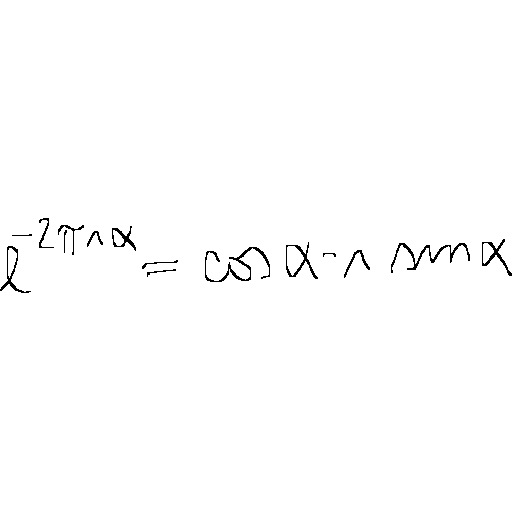 e^{-2πiα} = cos α - i sin α